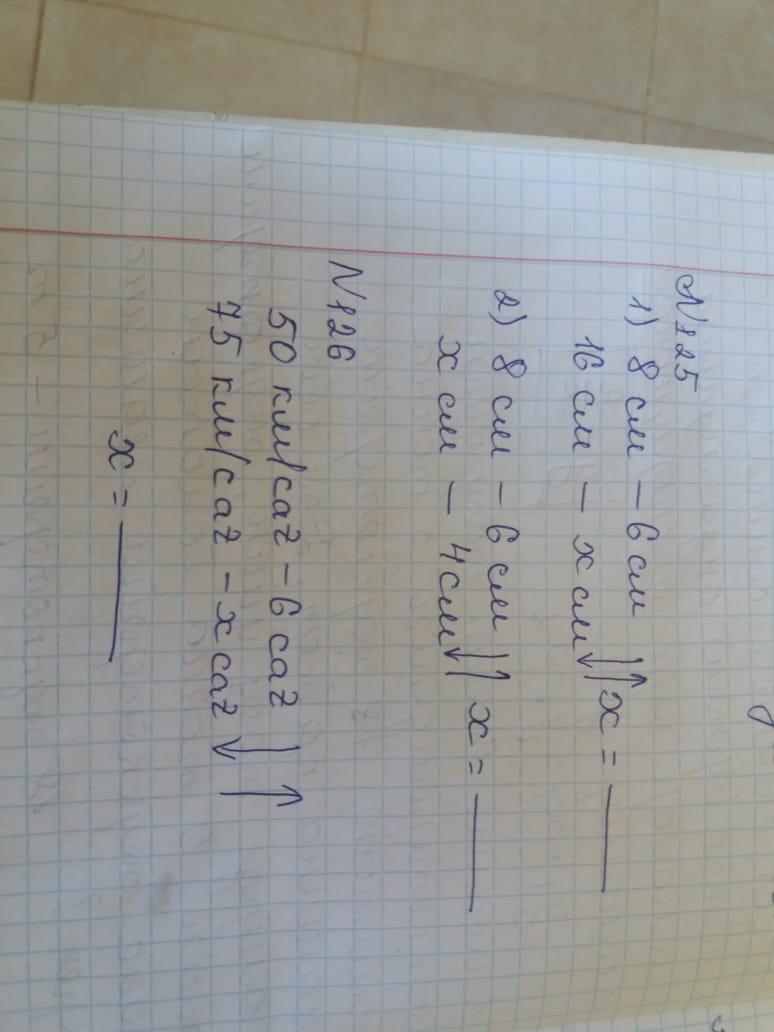 №125
1) 8 см – 6 см ↓↑ x =
16 см – x см
2) 8 см – 6 см ↓↑ x =
x см – 4 см
№126
50 км/саг – 6 саг ↓↑
75 км/саг – x саг
x =